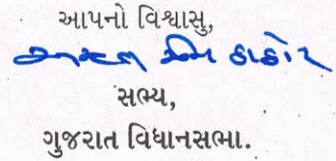 આપનો વિશ્વાસુ,
ઠાકોર
સભ્ય,
ગુજરાત વિધાનસભા.